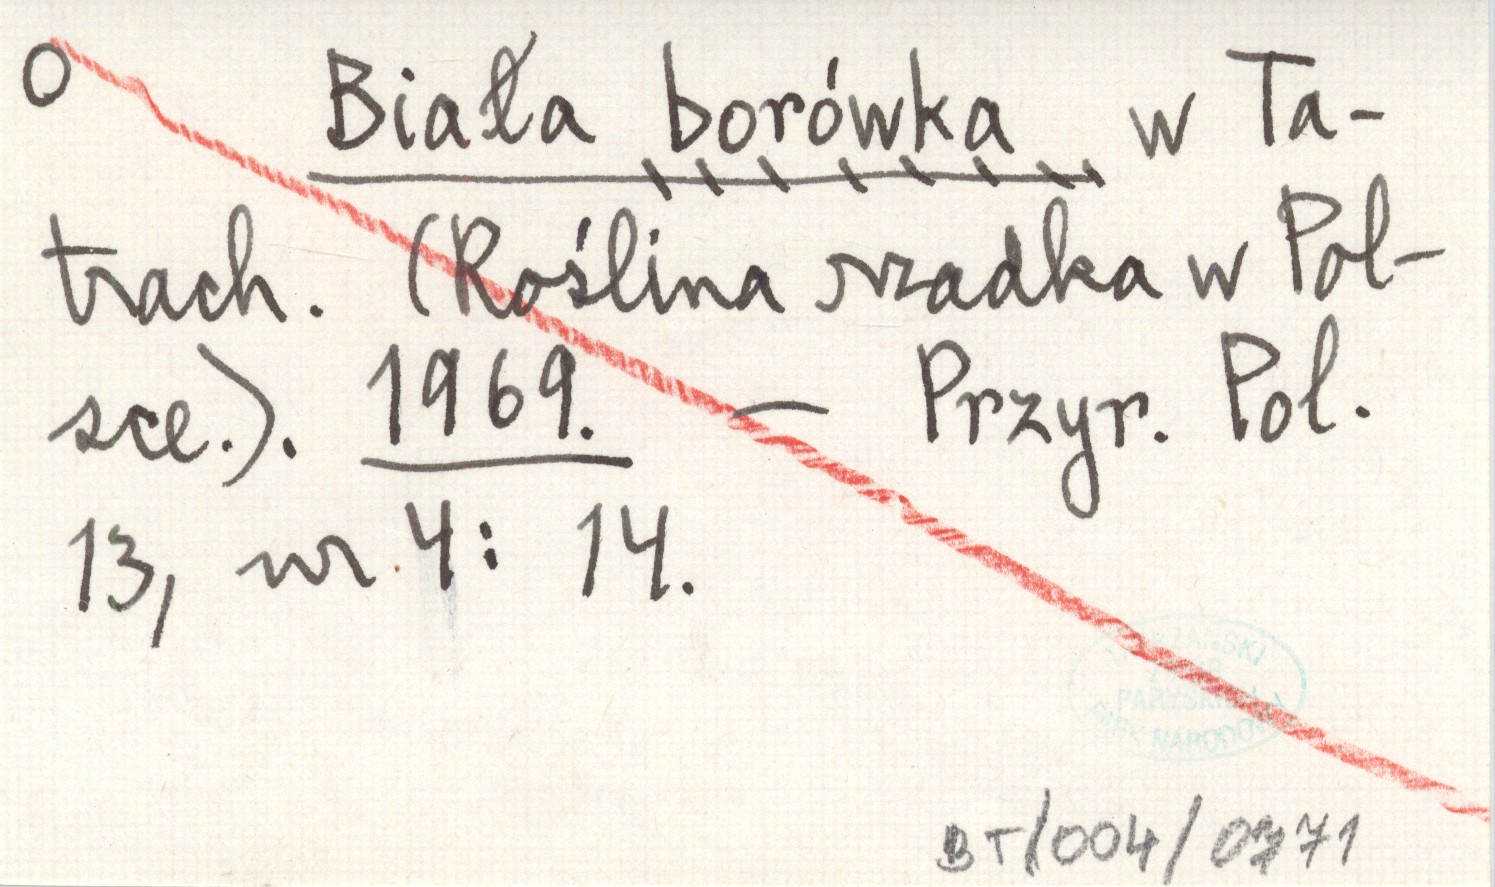 O Biała borówka w Ta-
trach. (Roślina rzadka w Pol-
sce.). 1969. — Przyr. Pol.
13, nr 4: 14.
PARK NARODOWY
BT/004/0771